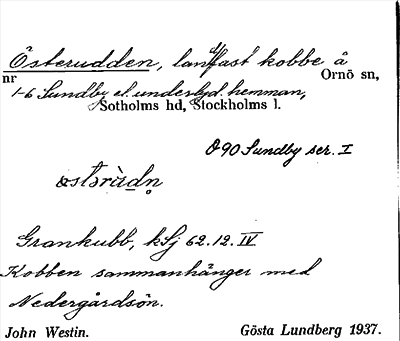 Österudden, landfast kobbe å
nr Ornö sn,
1-6 Sundby el. underlyd. hemman,
Sotholms hd, Stockholms l.
090 Sundby ser. I
østərùdn̥
Grankubb, kSj 62.12.IV
Kobben sammanhänger med
Nedergårdsön.
John Westin. Gösta Lundberg 1937.